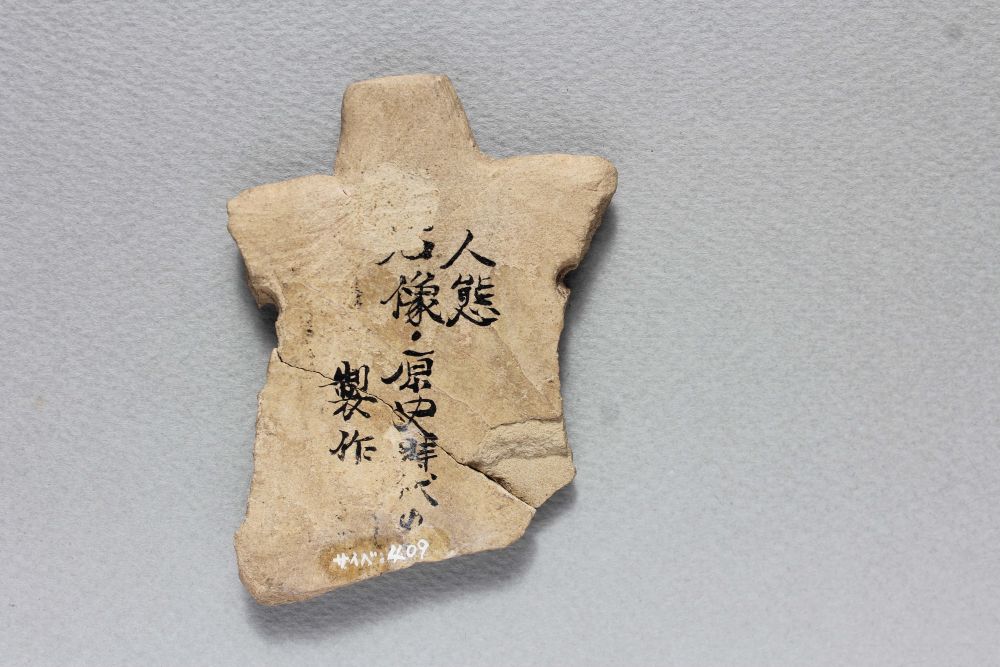 人態
像・原史時代の
製作
サイベ:409